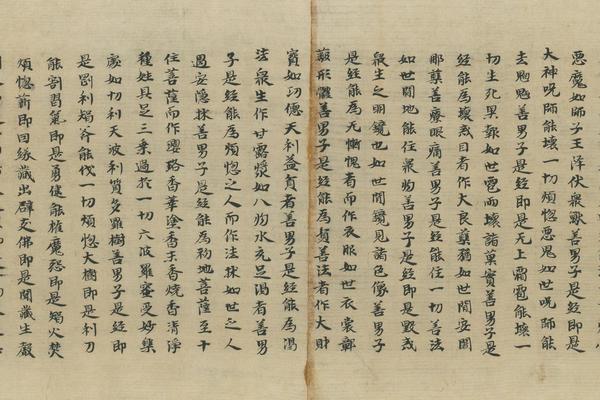 惡魔如師子王降伏衆獸善男子是經即是
大神呪師能壞一切煩惱惡鬼如世呪師能
去魍魎善男子是經即是无上霜雹能壞一
切生死果報如世雹雨壞諸菓實善男子是
經能爲壞戒目者作大良藥猶如世間安闍
那藥善療眼痛善男子是經能住一切善法
如世間地能住衆物善男子是經即是毀戒
衆生之明鏡也如世間鏡見諸色像善男子
是經能爲无慚愧者而作衣服如世衣裳鄣
蔽形體善男子是經能爲貧善法者作大財
寶如功德天利益貧者善男子是經能爲渴
法衆生作甘露漿如八功水充足渴者善男
子是經能爲煩惱之人而作法牀如世之人
遇安隱牀善男子是經能爲初地菩薩至十
住菩薩而作瓔珞香華塗香末香燒香清淨
種姓具足三乘過於一切六波羅蜜受妙樂
處如忉利天波利質多羅樹善男子是經即
是剛利智斧能伐一切煩惱大樹即是利刀
能割習氣即是勇健能摧魔怨即是智火焚
煩惱薪即因緣藏出辟支佛即是聞藏生聲